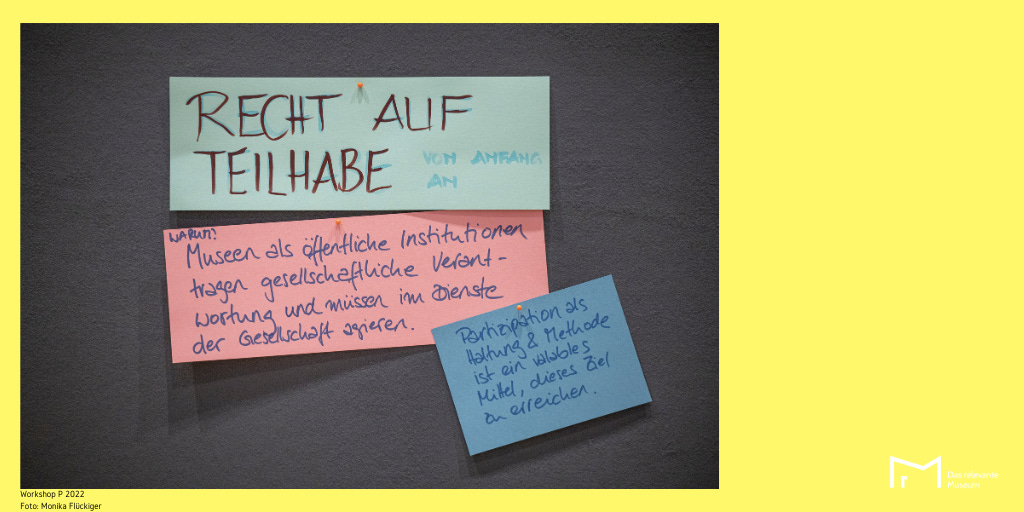 RECHT AUF
TEILHABE VON ANFANG
AN
WARUM?
Museen als öffentliche Institutionen
tragen gesellschaftliche Verant-
wortung und müssen im Dienste
der Gesellschaft agieren.
Partizipation als
Haltung & Methode
ist ein valables
Mittel, dieses Ziel
zu erreichen.
Workshop P 2022
Foto: Monika Flückiger
Das relevante
Museum